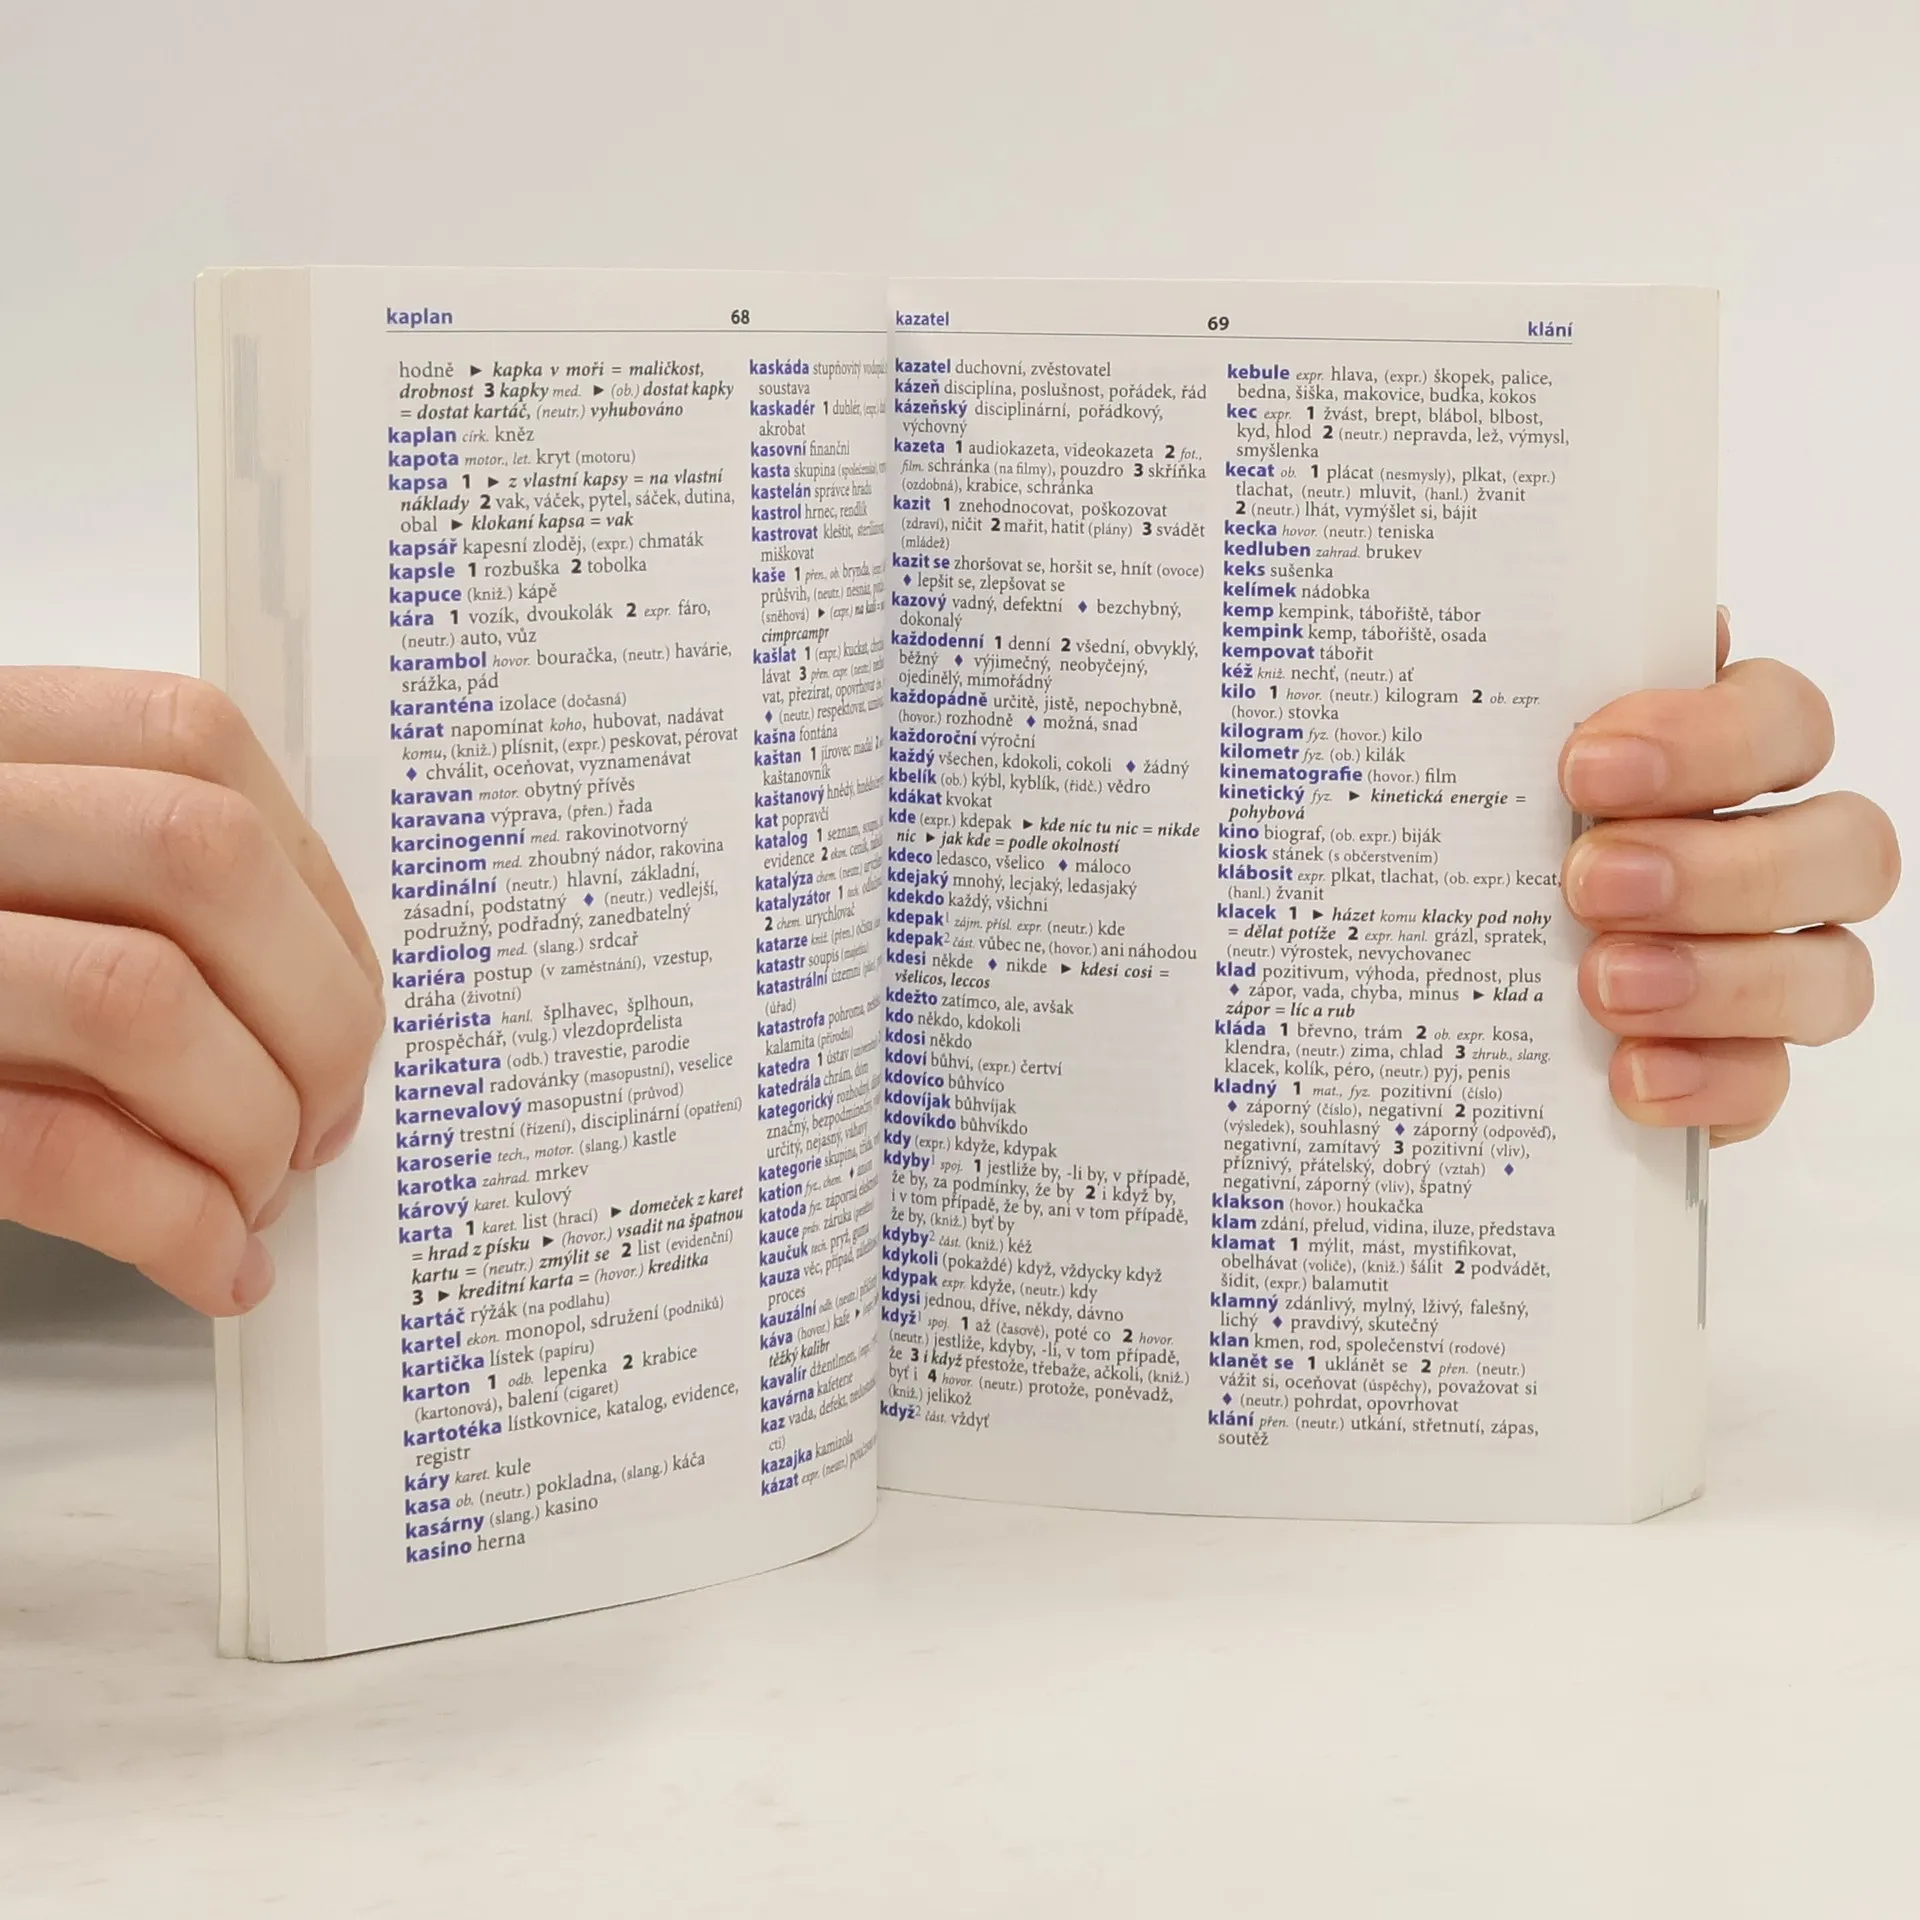 kaplan 68
hodně ► kapka v moři = maličkost,
drobnost 3 kapky med. ► (ob.) dostat kapky
= dostat kartáč, (neutr.) vyhubováno
kaplan círk. kněz
kapota motor., let. kryt (motoru)
kapsa 1 ► z vlastní kapsy = na vlastní
náklady 2 vak, váček, pytel, sáček, dutina,
obal ► klokaní kapsa = vak
kapsář kapesní zloděj, (expr.) chmaták
kapsle 1 rozbuška 2 tobolka
kapuce (kniž.) kápě
kára 1 vozík, dvoukolák 2 expr. fáro,
(neutr.) auto, vůz
karambol hovor. bouračka, (neutr.) havárie,
srážka, pád
karanténa izolace (dočasná)
kárat napomínat koho, hubovat, nadávat
komu, (kniž.) plísnit, (expr.) peskovat, pérovat
♦ chválit, oceňovat, vyznamenávat
karavan motor. obytný přívěs
karavana výprava, (přen.) řada
karcinogenní med. rakovinotvorný
karcinom med. zhoubný nádor, rakovina
kardinální (neutr.) hlavní, základní,
zásadní, podstatný ♦ (neutr.) vedlejší,
podružný, podřadný, zanedbatelný
kardiolog med. (slang.) srdcař
kariéra postup (v zaměstnání), vzestup,
dráha (životní)
kariérista hanl. šplhavec, šplhoun,
prospěchář, (vulg.) vlezdoprdelista
karikatura (odb.) travestie, parodie
karneval radovánky (masopustní), veselice
karnevalový masopustní (průvod)
kárný trestní (řízení), disciplinární (opatření)
karoserie tech., motor. (slang.) kastle
karotka zahrad. mrkev
kárový karet. kulový
karta 1 karet. list (hrací) ► domeček z karet
= hrad z písku ► (hovor.) vsadit na špatnou
kartu = (neutr.) zmýlit se 2 list (evidenční)
3 ► kreditní karta = (hovor.) kreditka
kartáč rýžák (na podlahu)
kartel ekon. monopol, sdružení (podniků)
kartička lístek (papíru)
karton 1 odb. lepenka 2 krabice
(kartonová), balení (cigaret)
kartotéka lístkovnice, katalog, evidence,
registr
káry karet. kule
kasa ob. (neutr.) pokladna, (slang.) káča
kasárny (slang.) kasino
kasino herna
kaskáda stupňovitý
soustava
kaskadér 1 dublér,
akrobat
kasovní finanční
kasta skupina
kastelán správce hradu
kastrol hrnec, rendlík
kastrovat kleštit,
miškovat
kaše 1 přen., ob. brynda,
průšvih, (neutr.)
(sněhová) ► (expr.)
cimprcampr
kašlat 1 (expr.) kuckat,
lávat 3 přen. expr. (neutr.)
vat, přezírat, opovrhovat
♦ (neutr.) respektovat,
kašna fontána
kaštan 1 jírovec maďal 2
kaštanovník
kaštanový hnědý,
kat popravčí
katalog 1 seznam,
evidence 2 ekon. ceník,
katalýza chem. (neutr.)
katalyzátor 1 tech.
2 chem. urychlovač
katarze kniž. (přen.) očista
katastr soupis (majetku)
katastrální územní
(úřad)
katastrofa pohroma,
kalamita (přírodní)
katedra 1 ústav
katedrála chrám, dóm
kategorický rozhodný,
značný, bezpodmínečný,
určitý, nejasný, váhavý
kategorie skupina, třída,
kation fyz., chem. ♦ anion
katoda fyz. záporná
kauce práv. záruka
kaučuk tech. pryž, guma
kauza věc, případ,
proces
kauzální odb. (neutr.)
káva (hovor.) kafe ►
těžký kalibr
kavalír džentlmen,
kavárna kafeterie
kaz vada, defekt,
cti)
kazajka kamizola
kázat expr. (neutr.)
kazatel 69 klání
kazatel duchovní, zvěstovatel
kázeň disciplína, poslušnost, pořádek, řád
kázeňský disciplinární, pořádkový,
výchovný
kazeta 1 audiokazeta, videokazeta 2 fot.,
film. schránka (na filmy), pouzdro 3 skříňka
(ozdobná), krabice, schránka
kazit 1 znehodnocovat, poškozovat
(zdraví), ničit 2 mařit, hatit (plány) 3 svádět
(mládež)
kazit se zhoršovat se, horšit se, hnít (ovoce)
♦ lepšit se, zlepšovat se
kazový vadný, defektní ♦ bezchybný,
dokonalý
každodenní 1 denní 2 všední, obvyklý,
běžný ♦ výjimečný, neobyčejný,
ojedinělý, mimořádný
každopádně určitě, jistě, nepochybně,
(hovor.) rozhodně ♦ možná, snad
každoroční výroční
každý všechen, kdokoli, cokoli ♦ žádný
kbelík (ob.) kýbl, kyblík, (řidč.) vědro
kdákat kvokat
kde (expr.) kdepak ► kde nic tu nic = nikde
nic ► jak kde = podle okolností
kdeco ledasco, všelico ♦ máloco
kdejaký mnohý, lecjaký, ledasjaký
kdekdo každý, všichni
kdepak¹ zájm. přísl. expr. (neutr.) kde
kdepak² část. vůbec ne, (hovor.) ani náhodou
kdesi někde ♦ nikde ► kdesi cosi =
všelicos, leccos
kdežto zatímco, ale, avšak
kdo někdo, kdokoli
kdosi někdo
kdoví bůhví, (expr.) čertví
kdovíco bůhvíco
kdovíjak bůhvíjak
kdovíkdo bůhvíkdo
kdy (expr.) kdyže, kdypak
kdyby¹ spoj. 1 jestliže by, -li by, v případě,
že by, za podmínky, že by 2 i když by,
i v tom případě, že by, ani v tom případě,
že by, (kniž.) byť by
kdyby² část. (kniž.) kéž
kdykoli (pokaždé) když, vždycky když
kdypak expr. kdyže, (neutr.) kdy
kdysi jednou, dříve, někdy, dávno
když¹ spoj. 1 až (časově), poté co 2 hovor.
(neutr.) jestliže, kdyby, -li, v tom případě,
že 3 i když přestože, třebaže, ačkoli, (kniž.)
byť i 4 hovor. (neutr.) protože, poněvadž,
(kniž.) jelikož
když² část. vždyť
kebule expr. hlava, (expr.) škopek, palice,
bedna, šiška, makovice, budka, kokos
kec expr. 1 žvást, brept, blábol, blbost,
kyd, hlod 2 (neutr.) nepravda, lež, výmysl,
smyšlenka
kecat ob. 1 plácat (nesmysly), plkat, (expr.)
tlachat, (neutr.) mluvit, (hanl.) žvanit
2 (neutr.) lhát, vymýšlet si, bájit
kecka hovor. (neutr.) teniska
kedluben zahrad. brukev
keks sušenka
kelímek nádobka
kemp kempink, tábořiště, tábor
kempink kemp, tábořiště, osada
kempovat tábořit
kéž kniž. nechť, (neutr.) ať
kilo 1 hovor. (neutr.) kilogram 2 ob. expr.
(hovor.) stovka
kilogram fyz. (hovor.) kilo
kilometr fyz. (ob.) kilák
kinematografie (hovor.) film
kinetický fyz. ► kinetická energie =
pohybová
kino biograf, (ob. expr.) biják
kiosk stánek (s občerstvením)
klábosit expr. plkat, tlachat, (ob. expr.) kecat,
(hanl.) žvanit
klacek 1 ► házet komu klacky pod nohy
= dělat potíže 2 expr. hanl. grázl, spratek,
(neutr.) výrostek, nevychovanec
klad pozitivum, výhoda, přednost, plus
♦ zápor, vada, chyba, minus ► klad a
zápor = líc a rub
kláda 1 břevno, trám 2 ob. expr. kosa,
klendra, (neutr.) zima, chlad 3 zhrub., slang.
klacek, kolík, péro, (neutr.) pyj, penis
kladný 1 mat., fyz. pozitivní (číslo)
♦ záporný (číslo), negativní 2 pozitivní
(výsledek), souhlasný ♦ záporný (odpověď),
negativní, zamítavý 3 pozitivní (vliv),
příznivý, přátelský, dobrý (vztah) ♦
negativní, záporný (vliv), špatný
klakson (hovor.) houkačka
klam zdání, přelud, vidina, iluze, představa
klamat 1 mýlit, mást, mystifikovat,
obelhávat (voliče), (kniž.) šálit 2 podvádět,
šidit, (expr.) balamutit
klamný zdánlivý, mylný, lživý, falešný,
lichý ♦ pravdivý, skutečný
klan kmen, rod, společenství (rodové)
klanět se 1 uklánět se 2 přen. (neutr.)
vážit si, oceňovat (úspěchy), považovat si
♦ (neutr.) pohrdat, opovrhovat
klání přen. (neutr.) utkání, střetnutí, zápas,
soutěž